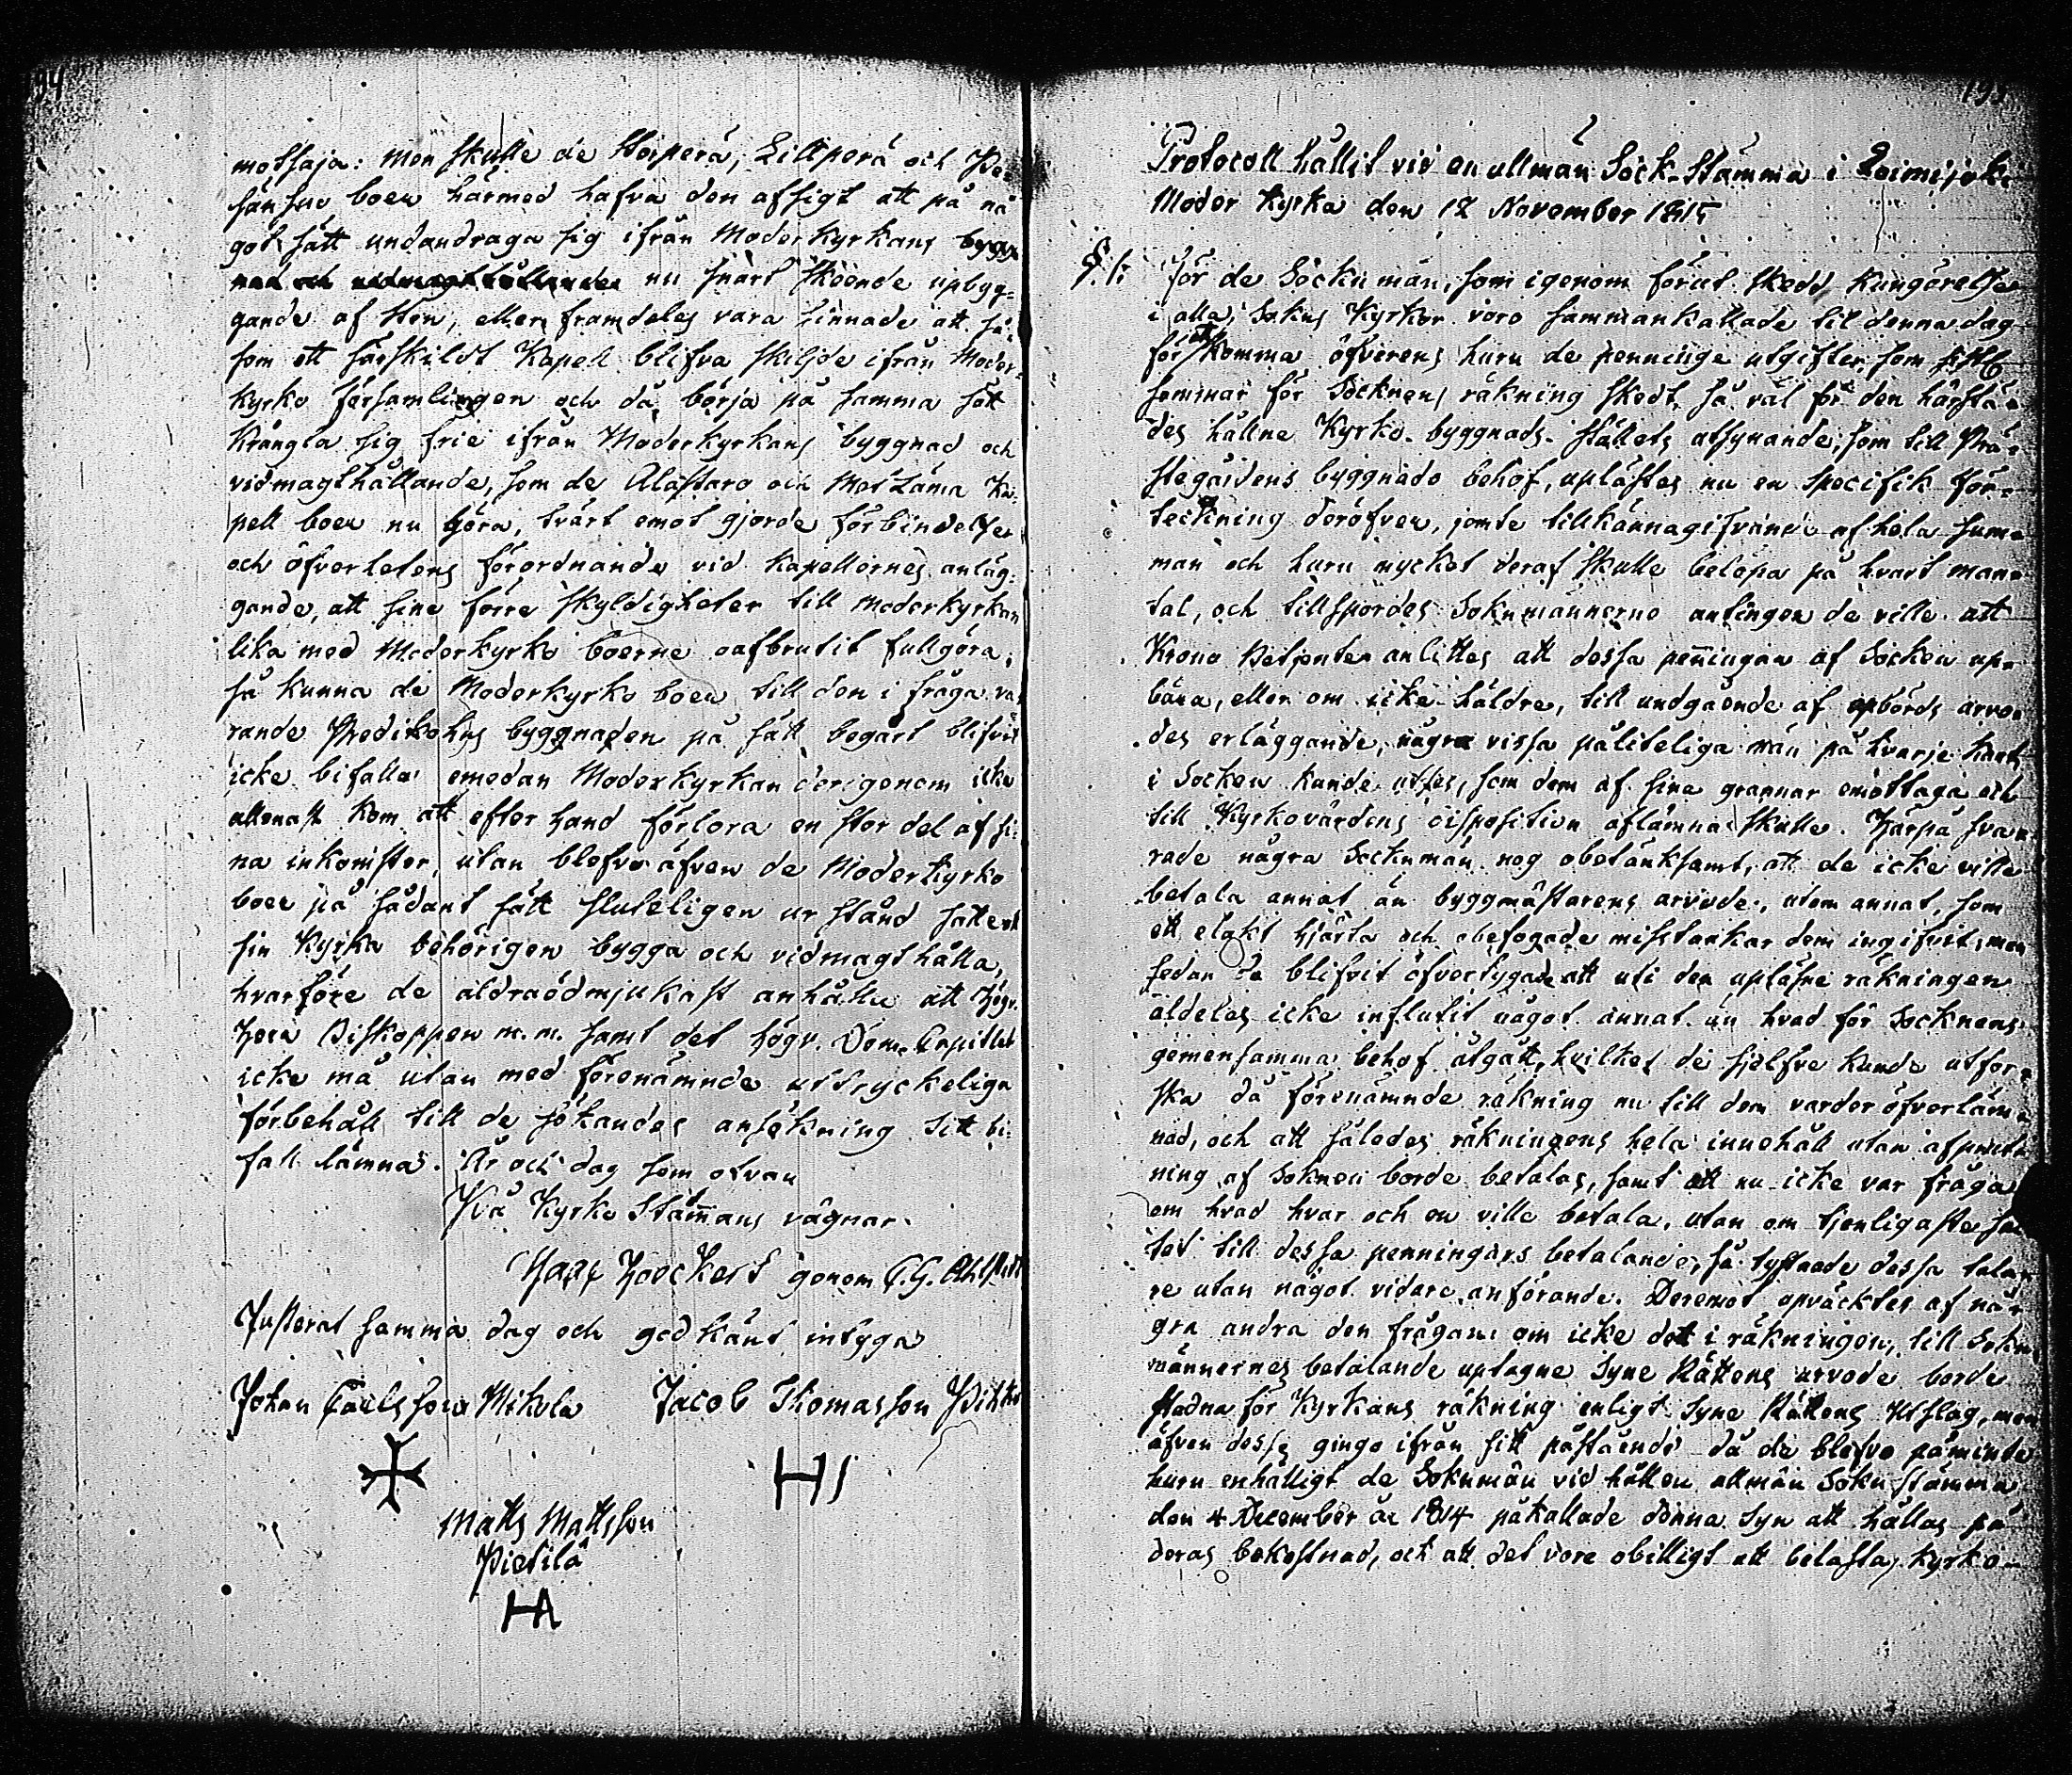 94
motsaja: Men skulle de Storperä, Lillperä och Pe-
sänsuo boer härmed hafva den afsigt att på nå
got sätt undandraga sig ifrån Moderkyrkans bygg
nad och vidmagthållande nu snart skeende upbyg=
gande af sten, eller framdeles vara sinnade att så=
som ett särskildt Kapell blifva skiljde ifrån Moder=
kyrko församlingen och då börja på samma sätt
krångla sig frie ifrån Moderkyrkans byggnad och
vidmagthållande, som de Alastaro och Metzäma Ka-
pell boer nu göra, tvärt emot gjorde förbindelser
och öfverhetens förordnande vid Kapellernes anläg=
gande, att sine förre skyldigheter till Moderkyrkan
lika med Moderkyrko boerne oafbrutit fullgöra;
så kunna de Moderkyrko boer till den i fråga va-
rande Predikohus byggnaden på sätt begärt blifvit
icke bifalla emedan Moderkyrkan derigenom icke
allenast kom att efter hand förlora en stor del af si-
na inkomster, utan blefvo äfven de Moderkyrko
boer på sådant sätt sluteligen ur stånd satte at
sin Kyrka behörigen bygga och vidmagthålla,
hvarföre de aldraödmjukast anhålla att Högv.
Herr Biskoppen m.m. samt det Högv. Dom Capitlet
icke må utan med förenämnde uttryckeliga
förbehåll till de sökandes ansökning sitt bi-
fall lämna. År och dag som ofvan
På Kyrko Stämans vägnar
Hoeckert genom C. G. Ahlstedt
Justerat samma dag och godkänt intyga
Johan Carlsson Mikola Jacob Thomasson
HI
Matts Mattsson
Pietilä
HA
195
Protocoll hållit vid en allmän Sock-Stämma i Loimijoki
Moder Kyrka den 12 November 1815
§. 1: För de Socknmän, som igenom förut skedd Kungörelse
i alla Sokns Kyrkor voro sammankallade til denna dag
för att komma öfverens huru de penninge utgifter, som sistl.
sommar för Socknens räkning skedt, så väl för den härstä-
des hållne Kyrko-byggnads-ställets afsynande, som till Prä-
stegårdens byggnads behof, uplästes nu en specifik för-
teckning deröfver, jemte tillkännagifvande af hela sum-
man och huru mycket deraf skulle belöpa på hvart man-
tal, och tillspordes Soknmännerne antingen de ville att
Krono Betjente anlittes att dessa penningar af Socken up-
bära, eller om icke häldre, till undgående af upbörds arvo-
des erläggande, några vissa påliteliga män på hvarje kant
i Socken kunde utses, som dem af sina grannar emottaga och
till Kyrkovärdens disposition aflämna skulle. Härpå sva-
rade några Socknmän nog obetänksamt, att de icke ville
betala annat än byggmästarens arvode, utom annat, som
ett elakt hjärta och obefogade misstankar dem ingifvit, men
sedan de blifvit öfvertygade att uti den upläsne räkningen
aldeles icke influtit något annat än hvad för Socknens
gemensamma behof åtgått, hvilket de sjelfve kunde utfor-
ska då förenämnde räkning nu till dem varder öfverläm-
nad, och att således räkningens hela innehåll utan afprut-
ning af Soknen borde betalas, samt att nu icke var fråga
om hvad hvar och en ville betala, utan om tjenligaste sä-
tet till dessa penningars betalande, så tystnade dessa tala-
re utan något vidare anförande. Deremot upväcktes af nå-
gra andra den frågan: om icke det i räkningen, till Sokn-
männernes betalande uptagne Syne Rättens arvode borde
stadna för Kyrkans räkning enligt Syne Rättens Utslag, men
äfven desse gingo ifrån sitt påstående då de blefvo påminde
huru enhälligt de Soknmän vid hållen allmän Sokn-Stämma
den 4 December år 1814 påkallade denna Syn att hållas på
deras bekostnad, och att det vore obilligt att belasta Kyrko-